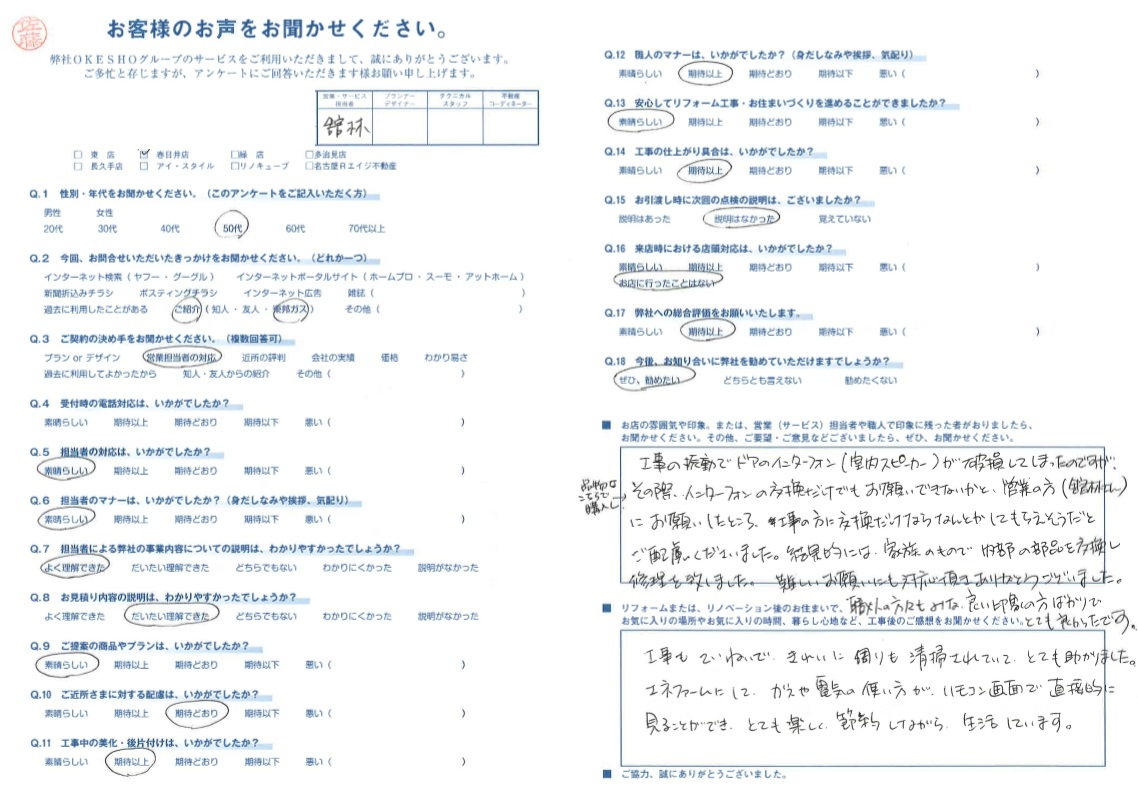 佐藤
お客様のお声をお聞かせください。
弊社OKESHOグループのサービスをご利用いただきまして、誠にありがとうございます。
ご多忙と存じますが、アンケートにご回答いただきます様お願い申し上げます。
営業・サービス
担当者
プランナー
デザイナー
テクニカル
スタッフ
不動産
コーディネーター
舘林
□ 東 店 ☑ 春日井店 □緑 店 □多治見店
□ 長久手店 □ アイ・スタイル □リノキューブ □名古屋Rエイジ不動産
Q.1 性別・年代をお聞かせください。（このアンケートをご記入いただく方）
男性 女性
20代 30代 40代 50代 60代 70代以上
Q.2 今回、お問合せいただいたきっかけをお聞かせください。（どれか一つ）
インターネット検索（ ヤフー ・ グーグル ） インターネットポータルサイト（ ホームプロ ・ スーモ ・ アットホーム ）
新聞折込みチラシ ポスティングチラシ インターネット広告 雑誌（ ）
過去に利用したことがある ご紹介（ 知人 ・ 友人 ・ 東邦ガス ） その他（ ）
Q.3 ご契約の決め手をお聞かせください。（複数回答可）
プラン or デザイン 営業担当者の対応 近所の評判 会社の実績 価格 わかり易さ
過去に利用してよかったから 知人・友人からの紹介 その他（ ）
Q.4 受付時の電話対応は、いかがでしたか？
素晴らしい 期待以上 期待どおり 期待以下 悪い（ ）
Q.5 担当者の対応は、いかがでしたか？
素晴らしい 期待以上 期待どおり 期待以下 悪い（ ）
Q.6 担当者のマナーは、いかがでしたか？（身だしなみや挨拶、気配り）
素晴らしい 期待以上 期待どおり 期待以下 悪い（ ）
Q.7 担当者による弊社の事業内容についての説明は、わかりやすかったでしょうか？
よく理解できた だいたい理解できた どちらでもない わかりにくかった 説明がなかった
Q.8 お見積り内容の説明は、わかりやすかったでしょうか？
よく理解できた だいたい理解できた どちらでもない わかりにくかった 説明がなかった
Q.9 ご提案の商品やプランは、いかがでしたか？
素晴らしい 期待以上 期待どおり 期待以下 悪い（ ）
Q.10 ご近所さまに対する配慮は、いかがでしたか？
素晴らしい 期待以上 期待どおり 期待以下 悪い（ ）
Q.11 工事中の美化・後片付けは、いかがでしたか？
素晴らしい 期待以上 期待どおり 期待以下 悪い（ ）
Q.12 職人のマナーは、いかがでしたか？（身だしなみや挨拶、気配り）
素晴らしい 期待以上 期待どおり 期待以下 悪い（ ）
Q.13 安心してリフォーム工事・お住まいづくりを進めることができましたか？
素晴らしい 期待以上 期待どおり 期待以下 悪い（ ）
Q.14 工事の仕上がり具合は、いかがでしたか？
素晴らしい 期待以上 期待どおり 期待以下 悪い（ ）
Q.15 お引渡し時に次回の点検の説明は、ございましたか？
説明はあった 説明はなかった 覚えていない
Q.16 来店時における店頭対応は、いかがでしたか？
素晴らしい 期待以上 期待どおり 期待以下 悪い（ ）
お店に行ったことはない
Q.17 弊社への総合評価をお願いいたします。
素晴らしい 期待以上 期待どおり 期待以下 悪い（ ）
Q.18 今後、お知り合いに弊社を勧めていただけますでしょうか？
ぜひ、勧めたい どちらとも言えない 勧めたくない
■ お店の雰囲気や印象。または、営業（サービス）担当者や職人で印象に残った者がおりましたら、
お聞かせください。その他、ご要望・ご意見などございましたら、ぜひ、お聞かせください。
工事の振動でドアのインターフォン(室内スピーカー)が破損してしまったのですが、
こちらで
購入し
その際、インターフォンの交換だけでもお願いできないかと、営業の方(舘林さん)
にお願いしたところ、工事の方に交換だけならなんとかしてもらえそうだと
ご配慮くださいました。結果的には、家族のもので内部の部品を交換し
修理を致しました。難しいお願いにも対応頂きありがとうございました。
職人の方々もみな、良い印象の方ばかりで
とても良かったです。
■ リフォームまたは、リノベーション後のお住まいで、
お気に入りの場所やお気に入りの時間、暮らし心地など、工事後のご感想をお聞かせください。
工事もていねいで、きれいに周りも清掃されていて、とても助かりました。
エネファームにして、ガスや電気の使い方が、リモコン画面で直接的に
見ることができ、とても楽しく、節約しながら、生活しています。
■ ご協力、誠にありがとうございました。